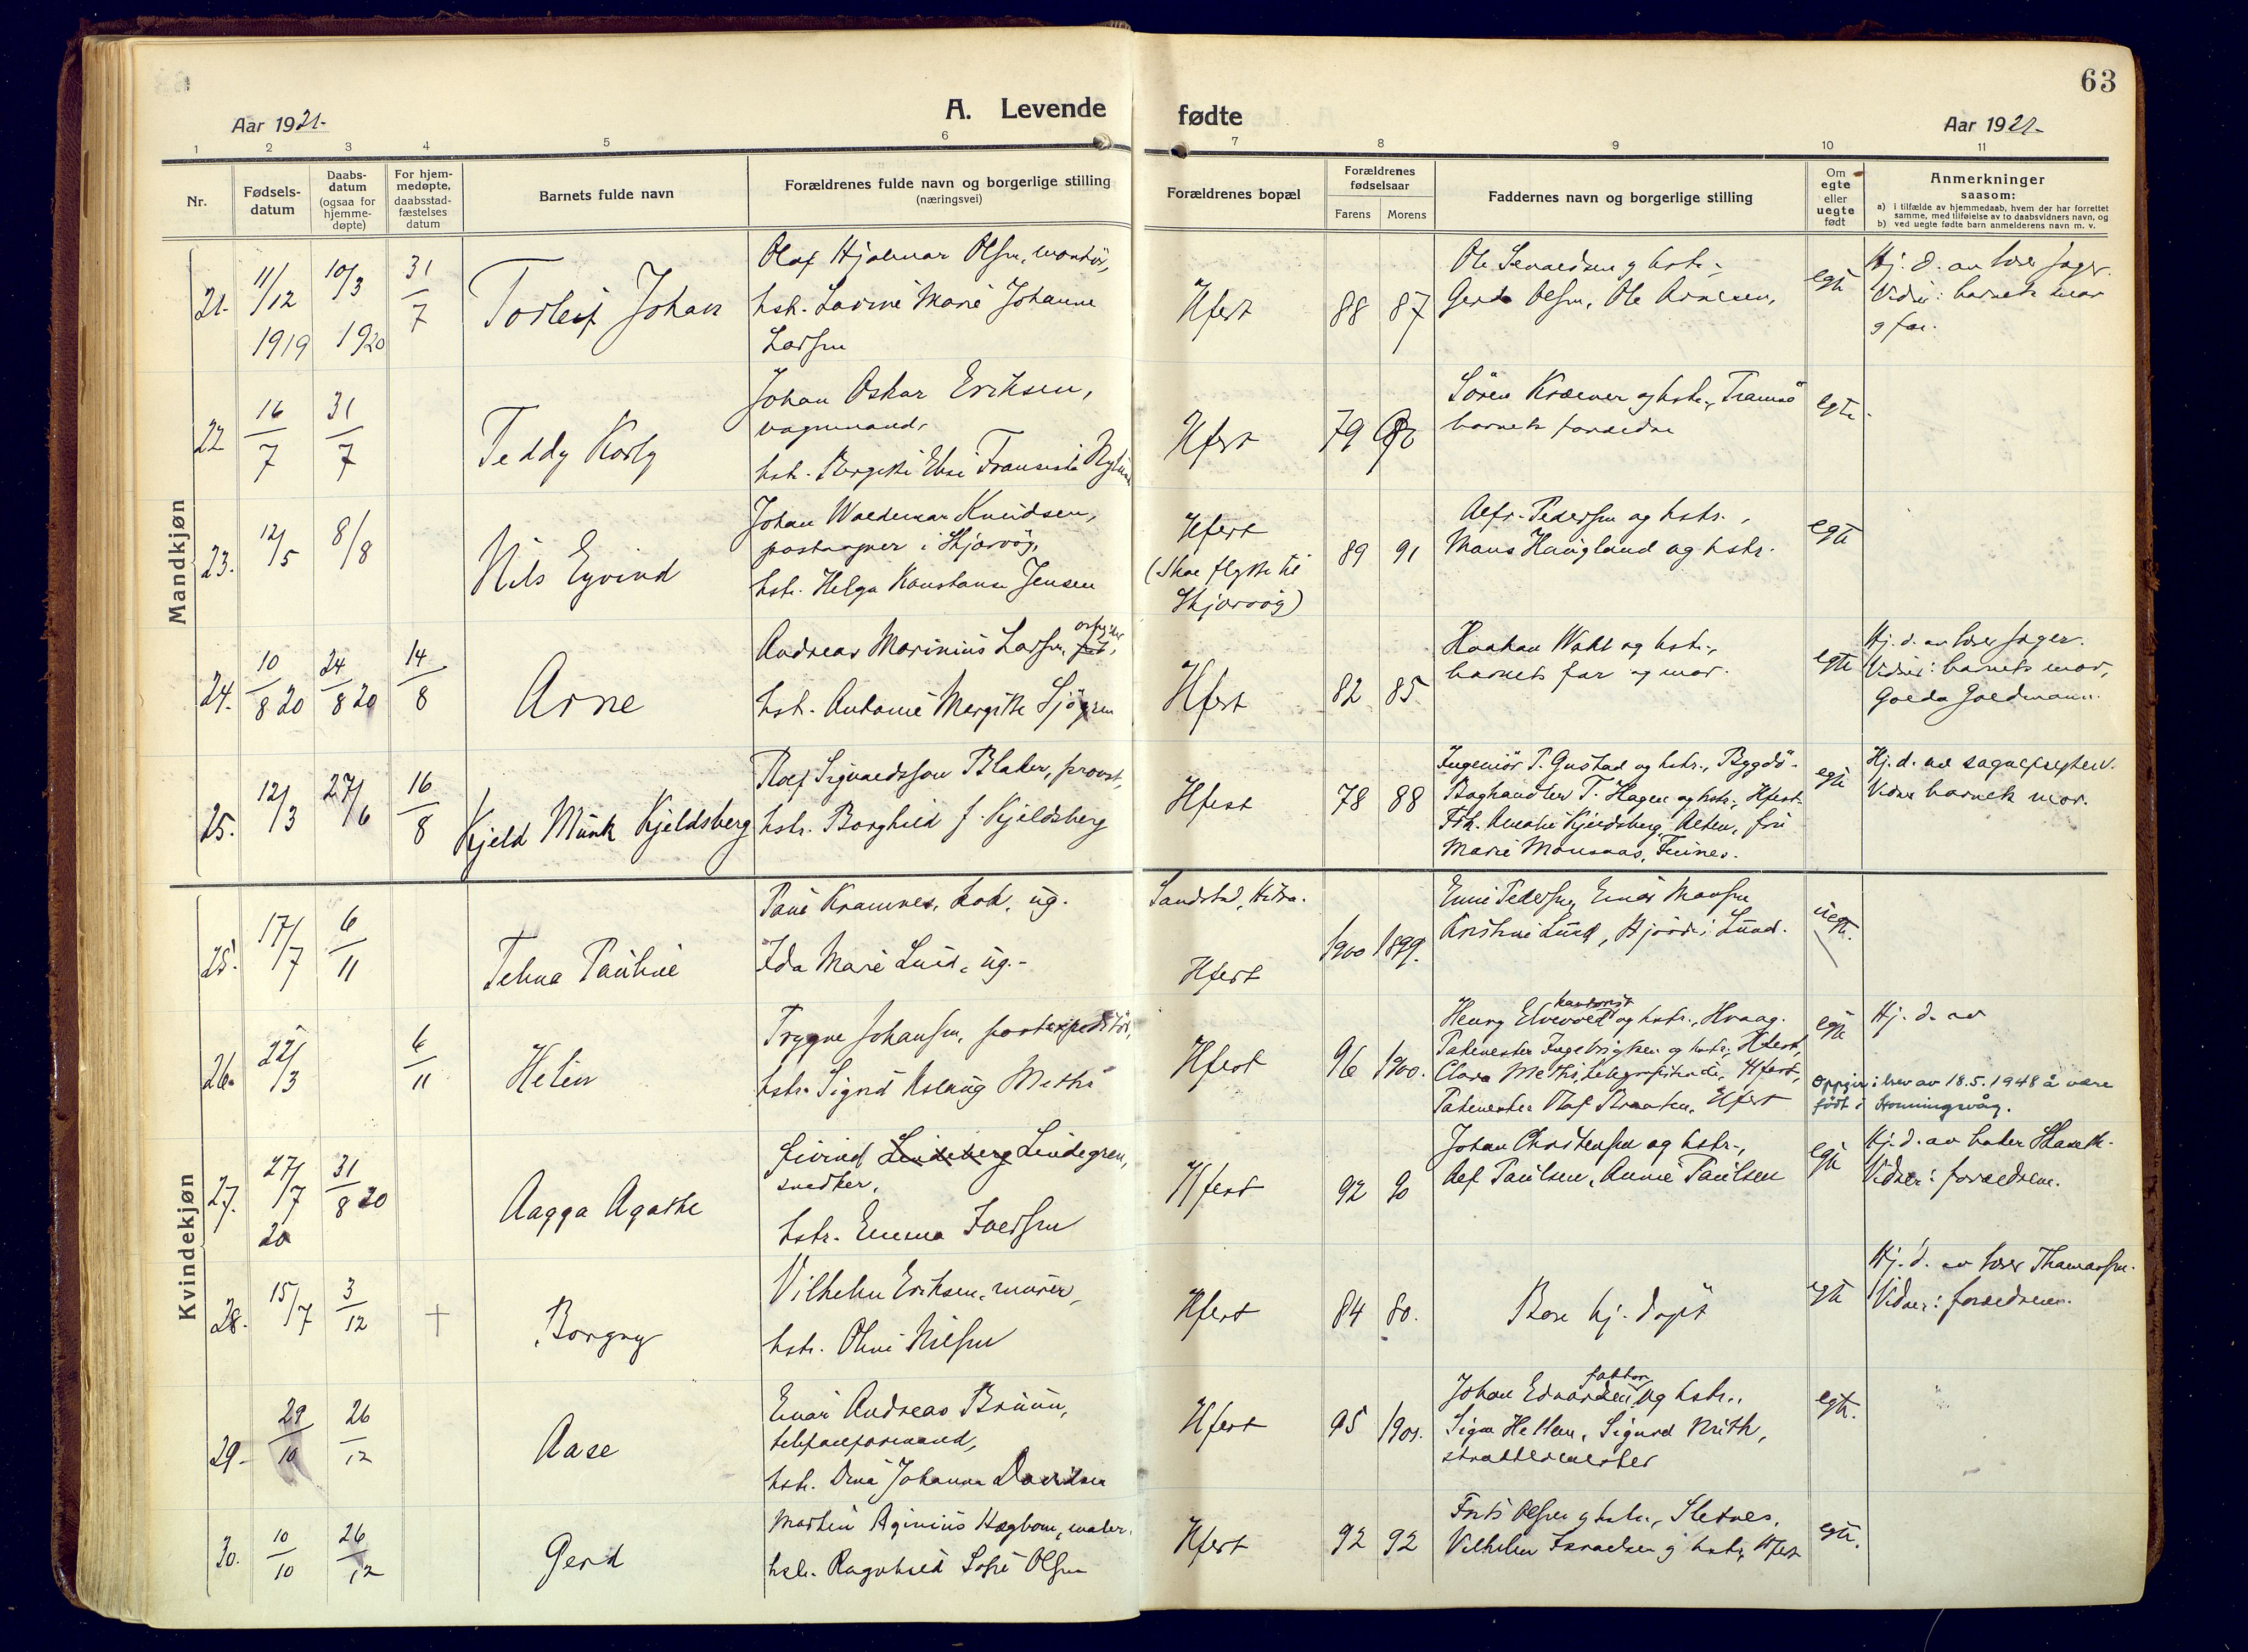 63
A. Levende fødte
Aar 1921.
Aar 1921.
1 2 3 4 5 6 7 8 9 10 11
Nr.
Fødsels-
datum
Daabs-
datum
(ogsaa for
hjemme-
døpte)
For hjem-
medøpte,
daabsstad-
fæstelses
datum
Barnets fulde navn
Forældrenes fulde navn og borgerlige stilling
(næringsvei)
Forældrenes bopæl
Forældrenes
fødselsaar
Farens Morens
Faddernes navn og borgerlige stilling
Om
egte
eller
uegte
født
Anmerkninger
saasom:
a) i tilfælde av hjemmedaab, hvem der har forrettet
samme, med tilføielse av to daabsvidners navn, og
b) ved uegte fødte barn anmelderens navn m. v.
Mandkjøn
21. 11/12 1919 10/3 1920 31/7
Torleif Johan
Olaf Hjalmar Olsen, montør,
hstr. Lavine Marie Johanne
Larsen
Hfest 88 87
Gerda Olsen, Ole Arnesen,
egte
Hj. d. av lærer Jager.
Vidner: barnets mor
og far.
22 16/7 31/7
Teddy Karly
Johan Oskar Eriksen,
vognmand,
Hfest 79
Søren Kræmer og hstr., Tromsø
barnets forældre
egte
23. 12/5 8/8
Nils Eyvind
Johan Waldemar Knudsen,
postaapner i Skjærvøy,
hstr. Helga Konstanse Jensen
Hfest
(Skal flytte til
Skjærvøy)
89 91
Alfr. Pedersen og hstr.,
Mons Haugland og hstr.
egte
24. 10/8 20 24/8 20 14/8
Arne
Andreas Marinius Larsen,
hstr. Antonie Margithe Sjøgren
Hfest 82 85
Haakon Wahl og hstr.,
barnets far og mor.
egte
Hj. d. av lærer Jager.
Vidner: barnets mor,
Golda Goldmann.
25. 12/3 27/6 16/8
Kjeld Munk Kjeldsberg
Rolf Sigvaldsson Blaker, provst,
hstr. Borghild f. Kjeldsberg
Hfest 78 88
Ingeniør P. Gustad og hstr., Bygdø.
Boghandler T. Hagen og hstr., Hfest.
Frk. Amalie Kjeldsberg, Alten, fru
Marie
egte
Hj. d. av
Vidne barnets mor.
Kvindekjøn
25. 17/7 6/11
Telma Pauline
Paul Kramnes, kok, ug.
Ida Marie Lund, ug.
Sandstad, Hitra.
Hfest
1900 1899.
Emil Pedersen, Einar Monsen
Kristine Lund, Hjørdis Lund.
uegte.
26. 22/3 6/11
Helen
Trygve Johansen, postexpeditør,
hstr. Sigrid Aslaug Methi
Hfest 96 1900.
Henry Elvevold kontorist og hstr., Hvaag.
Ingebrigtsen og hstr., Hfest,
Clara Methi, telegrafistinde, Hfest,
Olaf Braaten, Hfest
egte
Hj. d. av
Oppgir i brev av 18.5.1948 å være
født i Honningsvåg.
27. 27/7 20 31/8 20
Aagga Agathe
Eivind Lindeberg Lindegren,
snedker,
hstr. Emma Iversen
Hfest 92 90
Johan Christensen og hstr.,
Alf Paulsen, Annie Paulsen
egte
Hj. d. av baker
Vidner: forældrene.
28. 15/7 3/12 †
Borgny
Vilhelm Eriksen, murer,
hstr. Oline Nilsen
Hfest 84 80.
Bare hj. døpt
egte
Hj. d. av lærer Thomassen.
Vidner: forældrene.
29. 29/10 26/12
Aase
Einar Andreas Bruun,
telefonformand,
hstr. Dina Johanna Davidsen
Hfest 95 1901.
Johan Edvardsen, faktor og hstr.,
Signe Hellem, Sigurd Krith,
skræddermester
egte.
30. 10/10 26/12
Gerd
Martin Aginius Hægbom, maler.
hstr. Ragnhild Sofie Olsen
Hfest 92 92
Frits Olsen og hstr., Sletnes.
Vilhelm Israelsen og hstr, Hfest
egte.